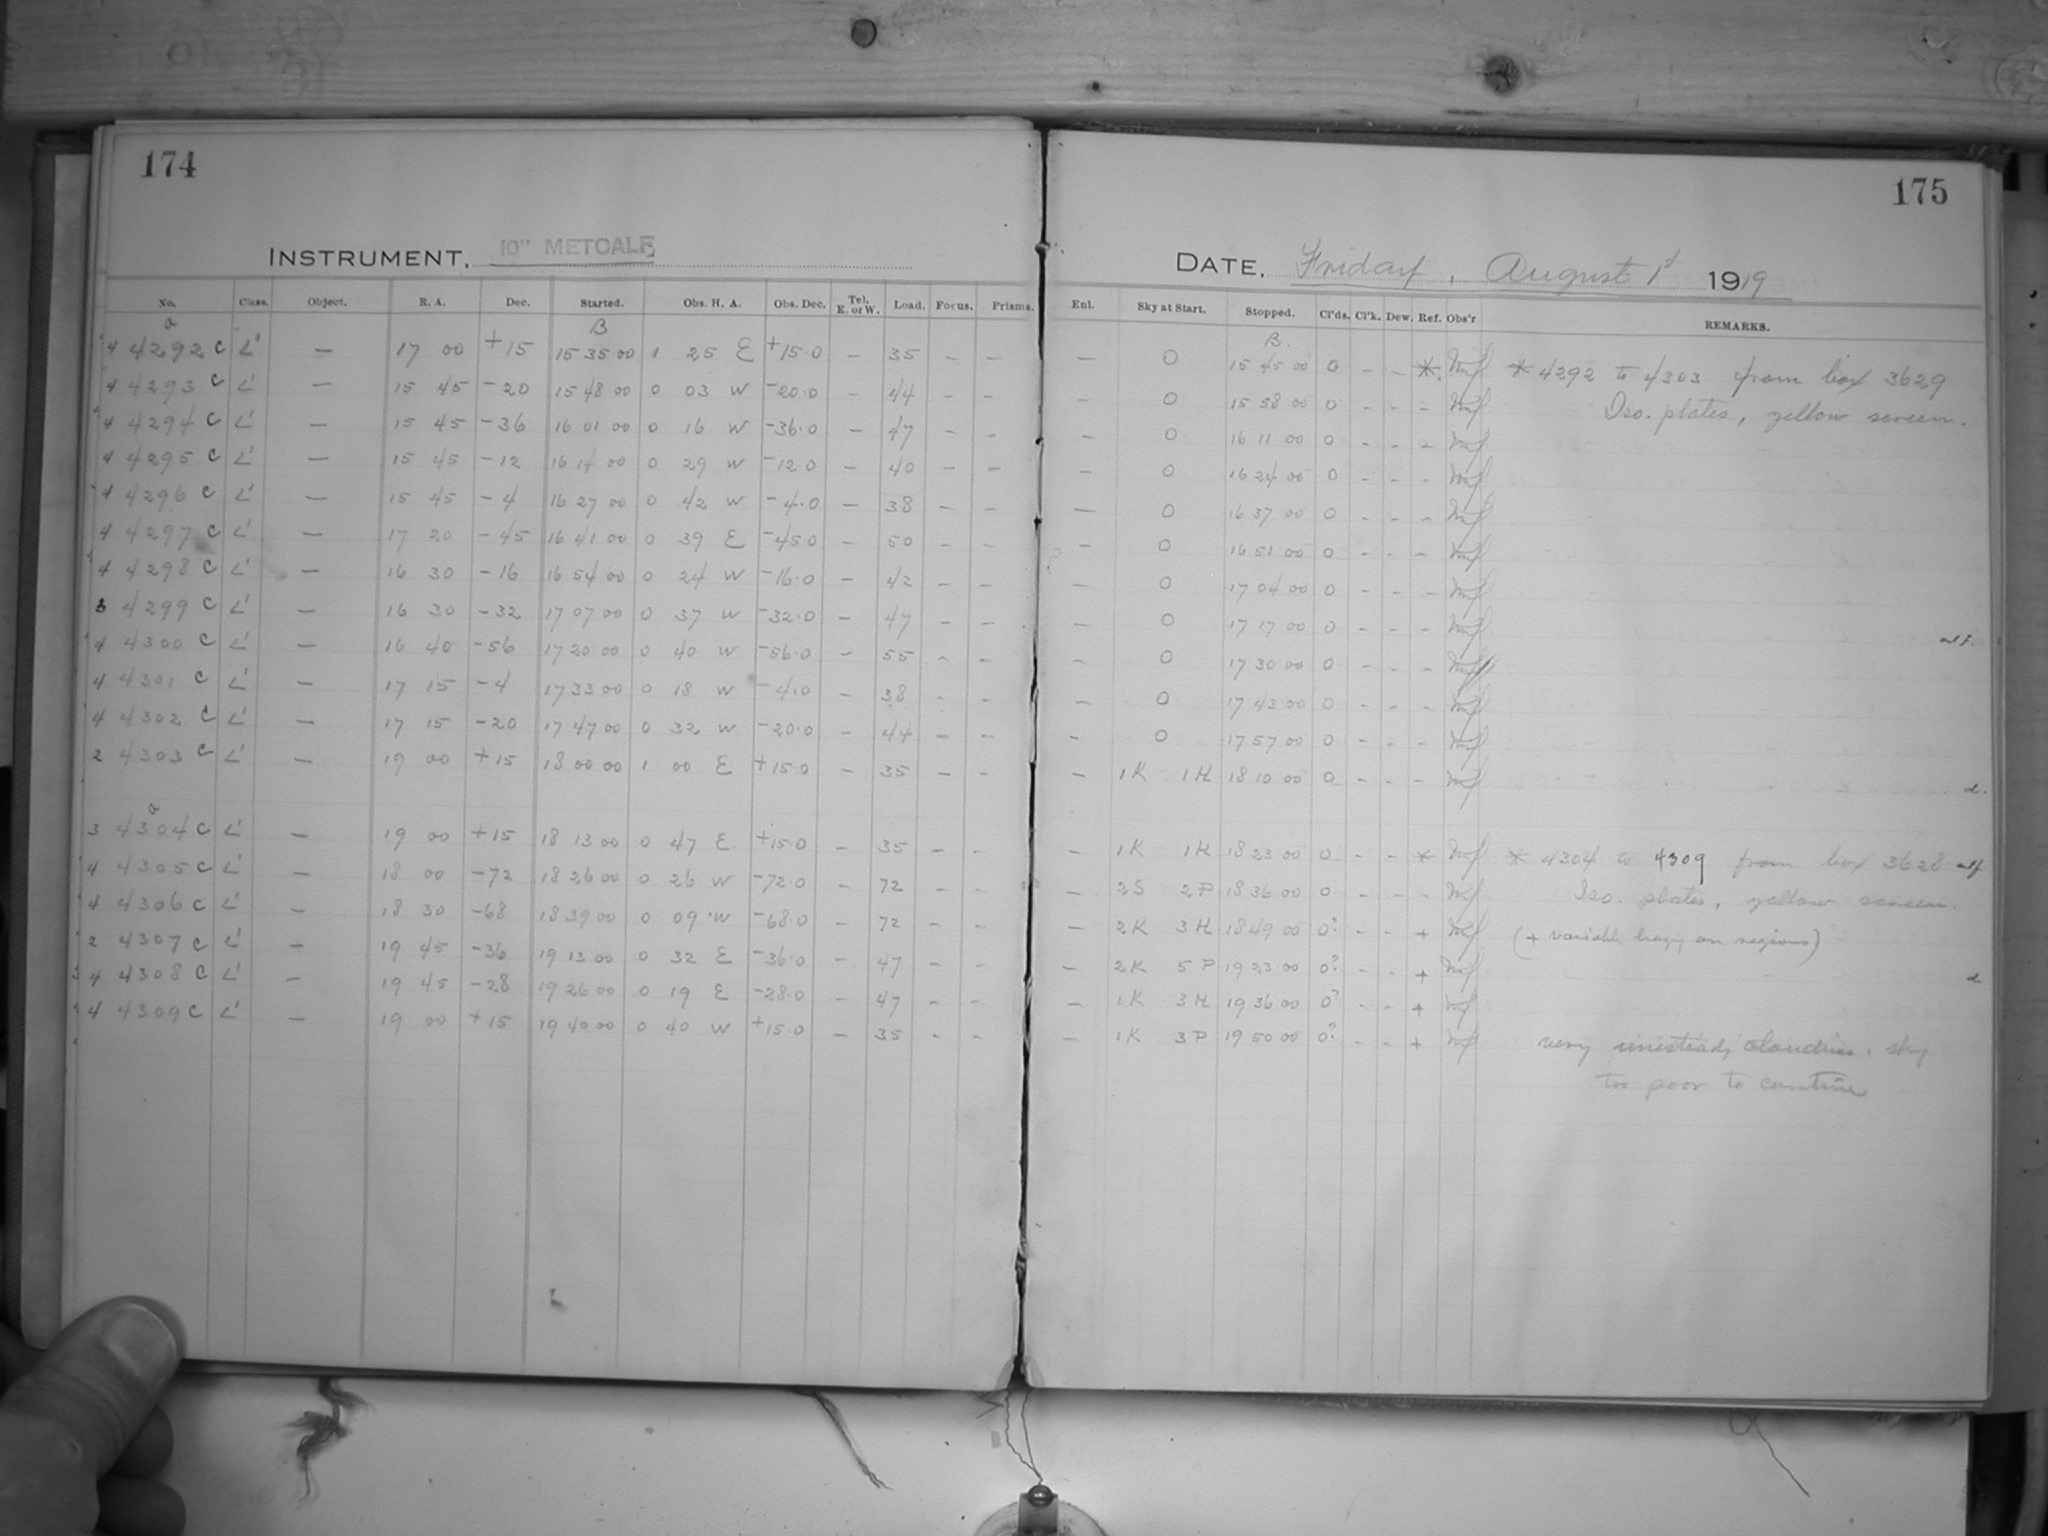 174
175
INSTRUMENT, 10" METCALF
DATE, Friday, August 1st 1919
No. Class. Object. R. A. Dec. Started. Obs. H. A. Obs. Dec. Tel. E. or W. Load. Focus. Prisms. Enl. Sky at Start. Stopped. Cl'ds. Cl'k. Dew. Ref. Obs'r REMARKS.
a B B.
4 4292 C L' — 17 00 +15 15 35 00 1 25 E +15.0 – 35 – – — 0 15 45 00 0 - - * * 4292 to 4303 from box 3629
4 4293 C L' — 15 45 -20 15 48 00 0 03 W -20.0 – 44 – – — 0 15 58 00 0 - - - Iso. plates, yellow screen.
4 4294 C L' — 15 45 -36 16 01 00 0 16 W -36.0 – 47 – – – 0 16 11 00 0 - - -
4 4295 C L' — 15 45 -12 16 14 00 0 29 W -12.0 – 40 – – — 0 16 24 00 0 - - -
4 4296 C L' — 15 45 -4 16 27 00 0 42 W -4.0 – 38 – – — 0 16 37 00 0 - - -
4 4297 C L' — 17 20 -45 16 41 00 0 39 E -45.0 – 50 – – – 0 16 51 00 0 - - -
4 4298 C L' — 16 30 -16 16 54 00 0 24 W -16.0 – 42 – – – 0 17 04 00 0 - - -
3 4299 C L' — 16 30 -32 17 07 00 0 37 W -32.0 – 47 – – – 0 17 17 00 0 - - -
4 4300 C L' — 16 40 -56 17 20 00 0 40 W -56.0 – 55 – – – 0 17 30 00 0 - - -
4 4301 C L' – 17 15 -4 17 33 00 0 18 W -4.0 – 38 – – – 0 17 43 00 0 - - -
4 4302 C L' – 17 15 -20 17 47 00 0 32 W -20.0 – 44 – – – 0 17 57 00 0 - - -
2 4303 C L' – 19 00 +15 18 00 00 1 00 E +15.0 – 35 – – – 1K 1H 18 10 00 0 - - - d.
a
3 4304 C L' – 19 00 +15 18 13 00 0 47 E +15.0 – 35 – – – 1K 1H 18 23 00 0 - - * * 4304 to 4309 from box 3628
4 4305 C L' – 18 00 -72 18 26 00 0 26 W -72.0 – 72 – – – 2S 2P 18 36 00 0 - - - Iso. plates, yellow screen.
4 4306 C L' – 18 30 -68 18 39 00 0 09 W -68.0 – 72 – – – 2K 3H 18 49 00 0? - - + (+ variable hazy on regions)
2 4307 C L' – 19 45 -36 19 13 00 0 32 E -36.0 – 47 – – – 2K 5P 19 23 00 0? - - + d
4 4308 C L' – 19 45 -28 19 26 00 0 19 E -28.0 – 47 – – – 1K 3H 19 36 00 0? - - +
4 4309 C L' – 19 00 +15 19 40 00 0 40 W +15.0 – 35 – – – 1K 3P 19 50 00 0? - - + very unsteady, sky
too poor to continue